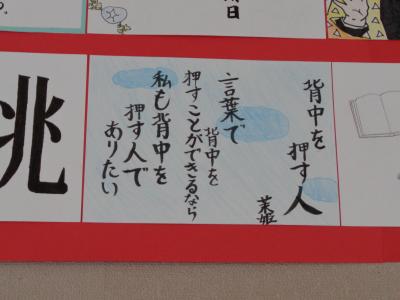 背中を
押す人
茉姫
言葉で
背中を
押すことができるなら
私も背中を
押す人で
ありたい
兆
日